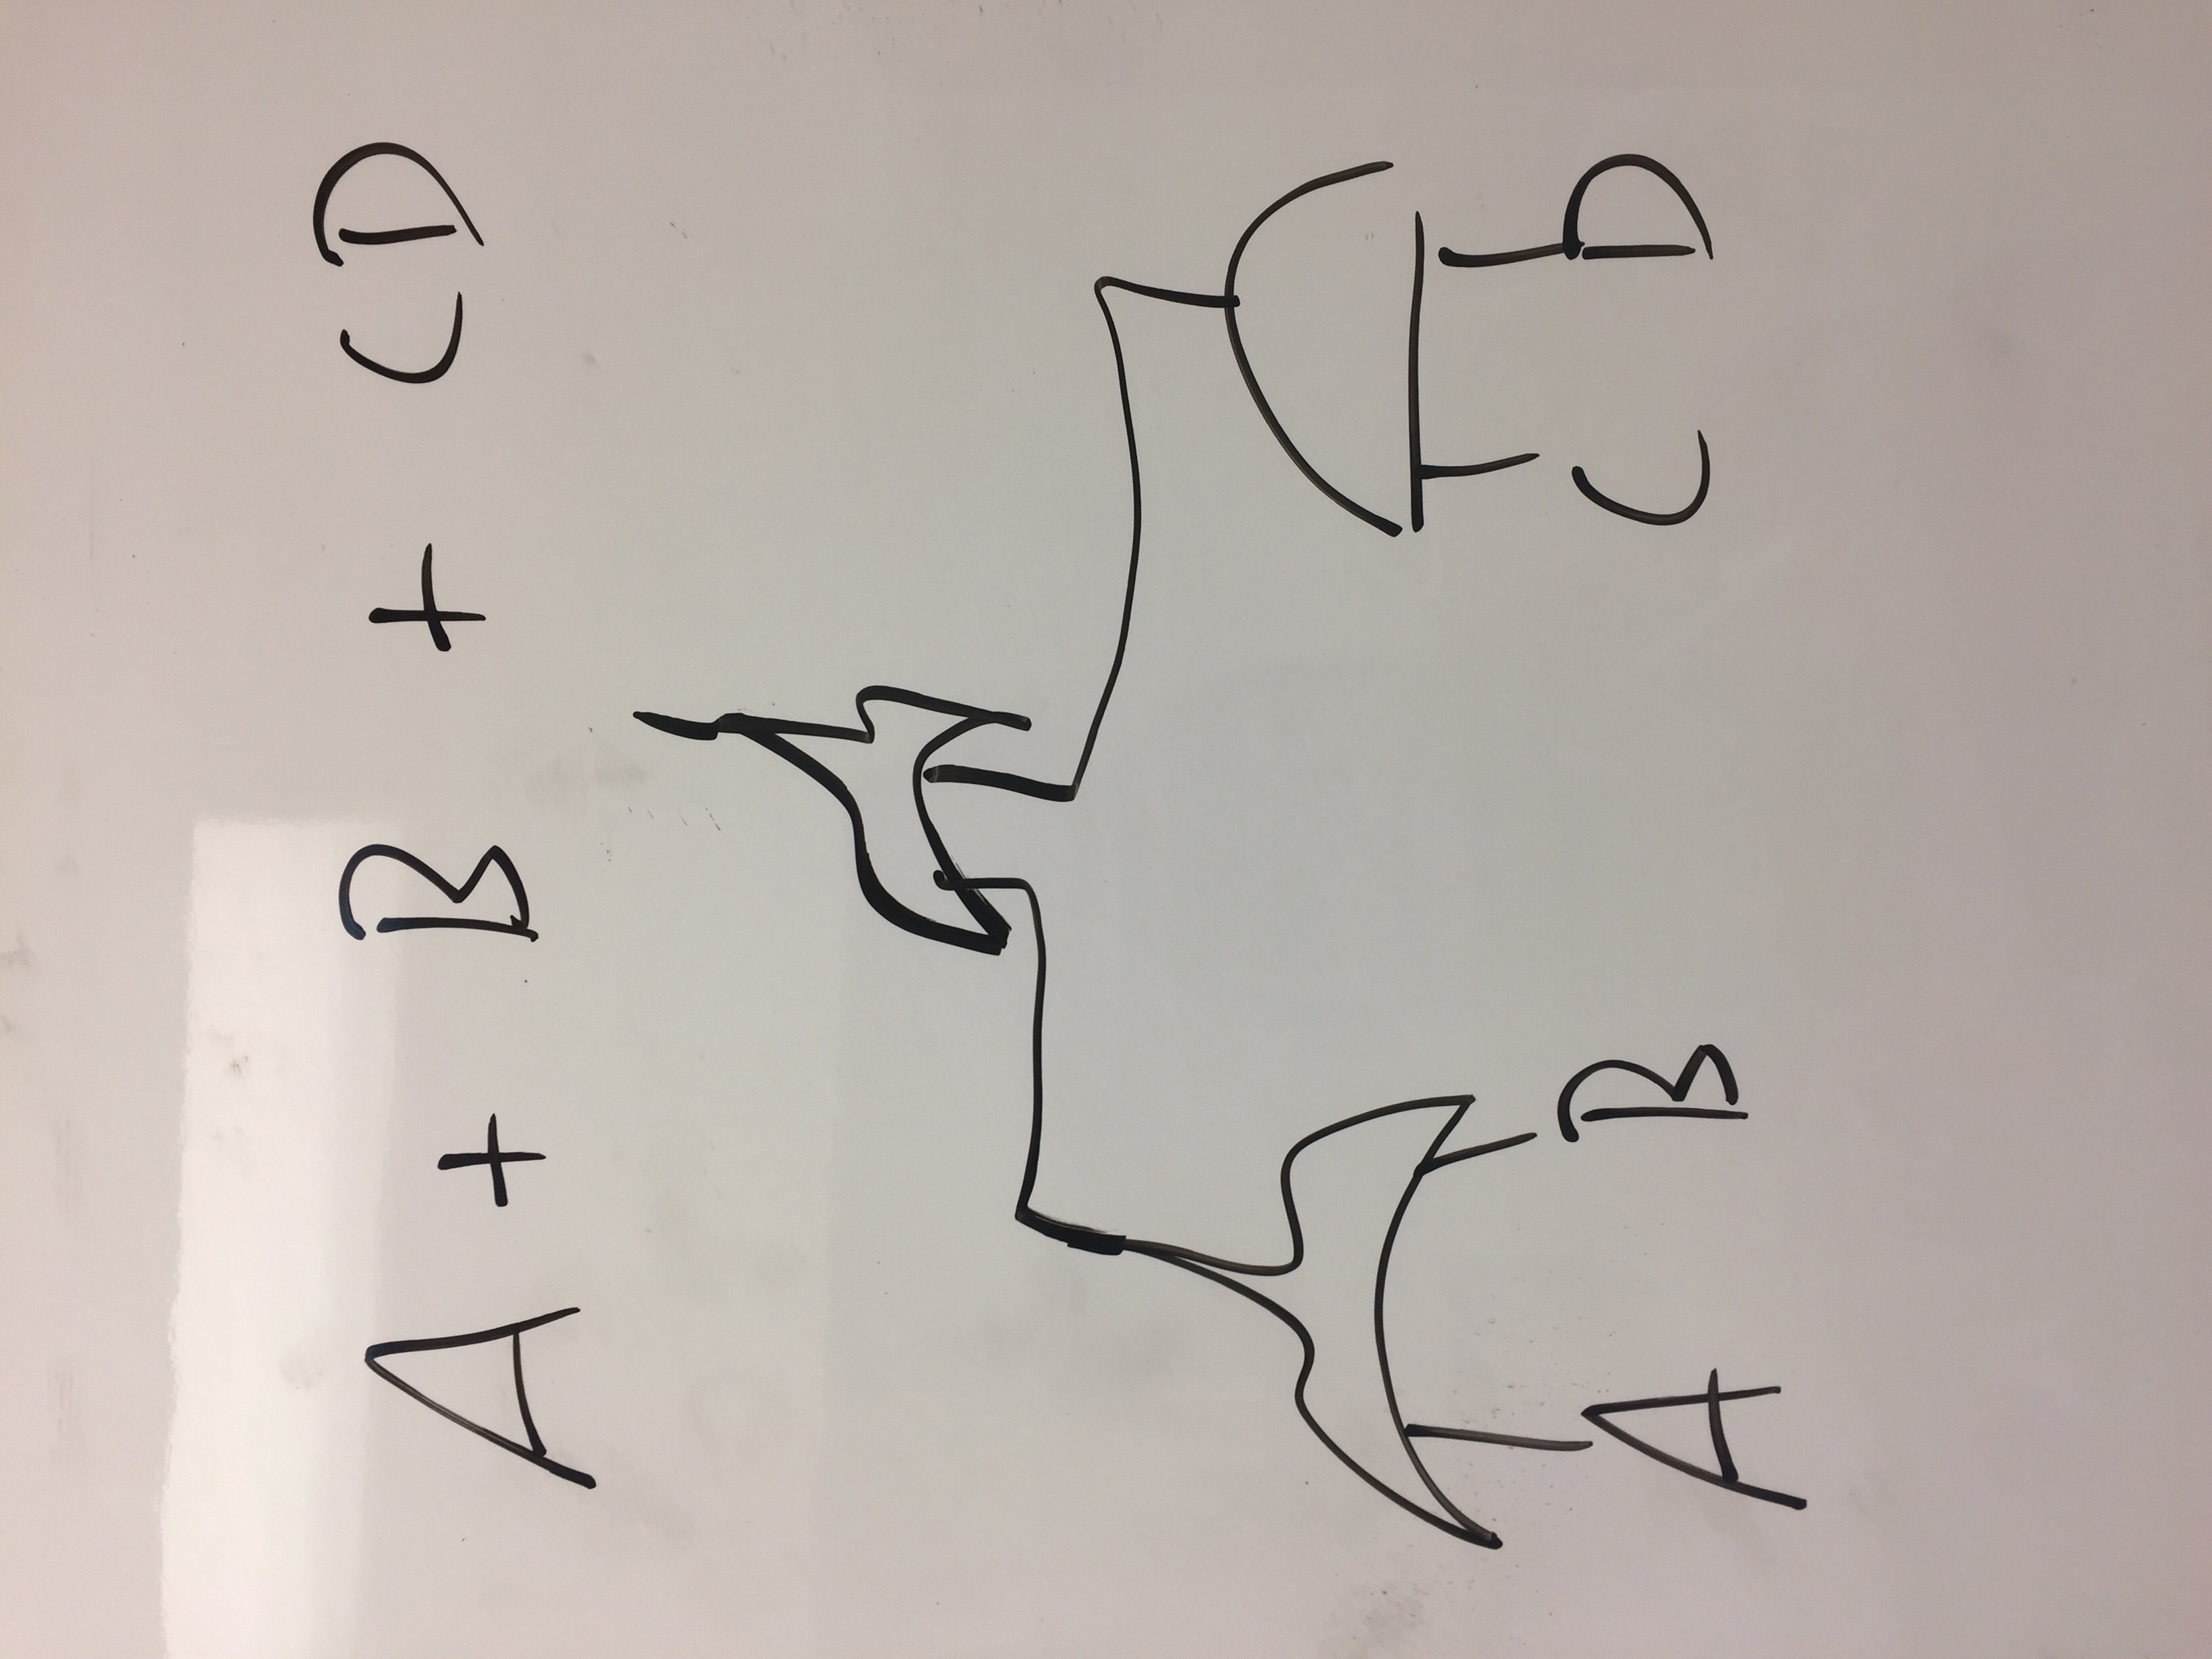 A + B + CD
A B C D